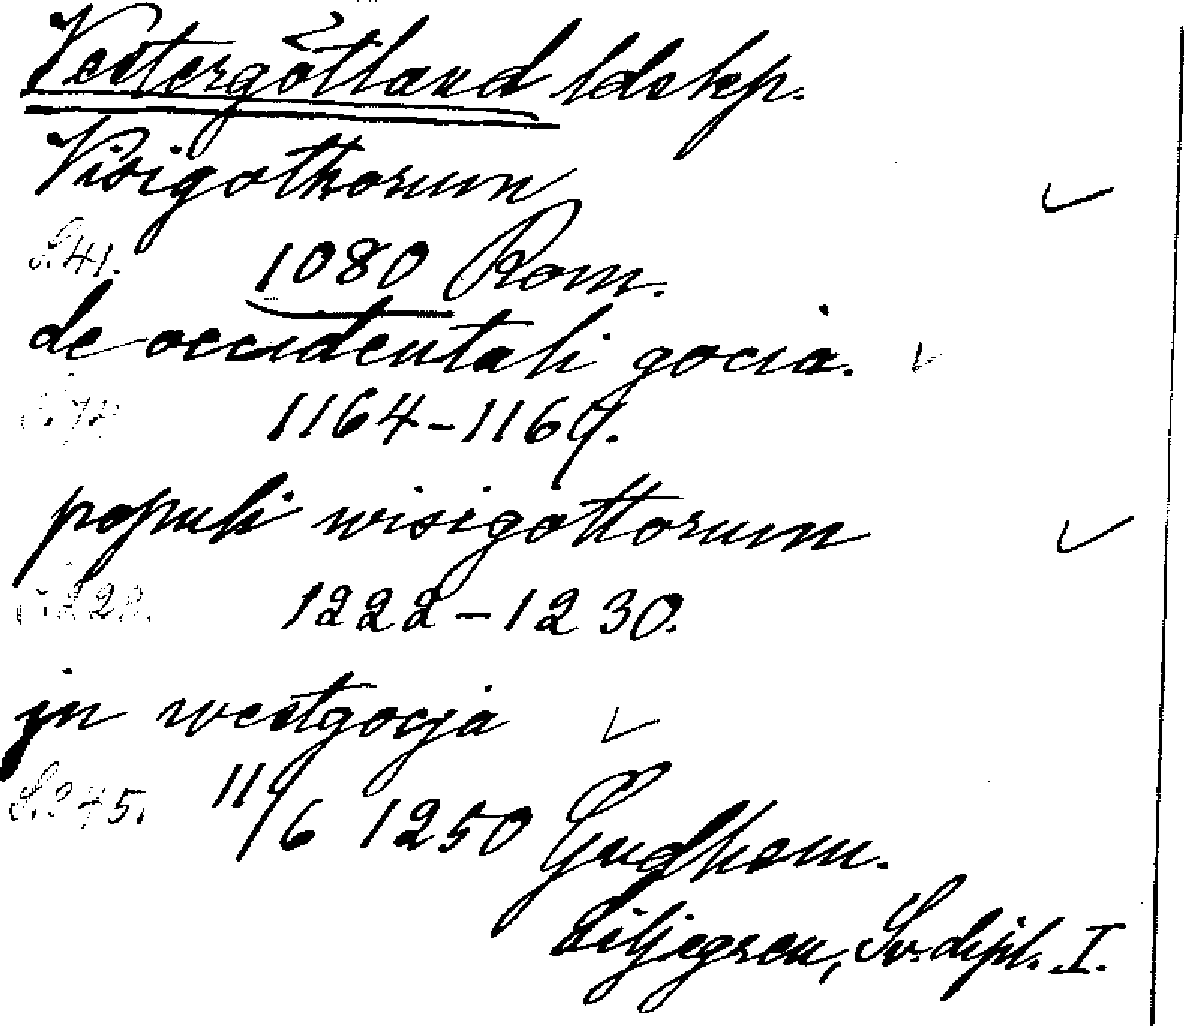 Vestergötland ldskp.
Visigothorum
S. 41. 1080 Rom.
de occidentali gocia.
S. 72 1164-1167.
populi wisigottorum
S. 228. 1222-1230.
jn westgocja
S. 245. 11/6 1250 Gudhem.
Liljegren, Sv. dipl. I.